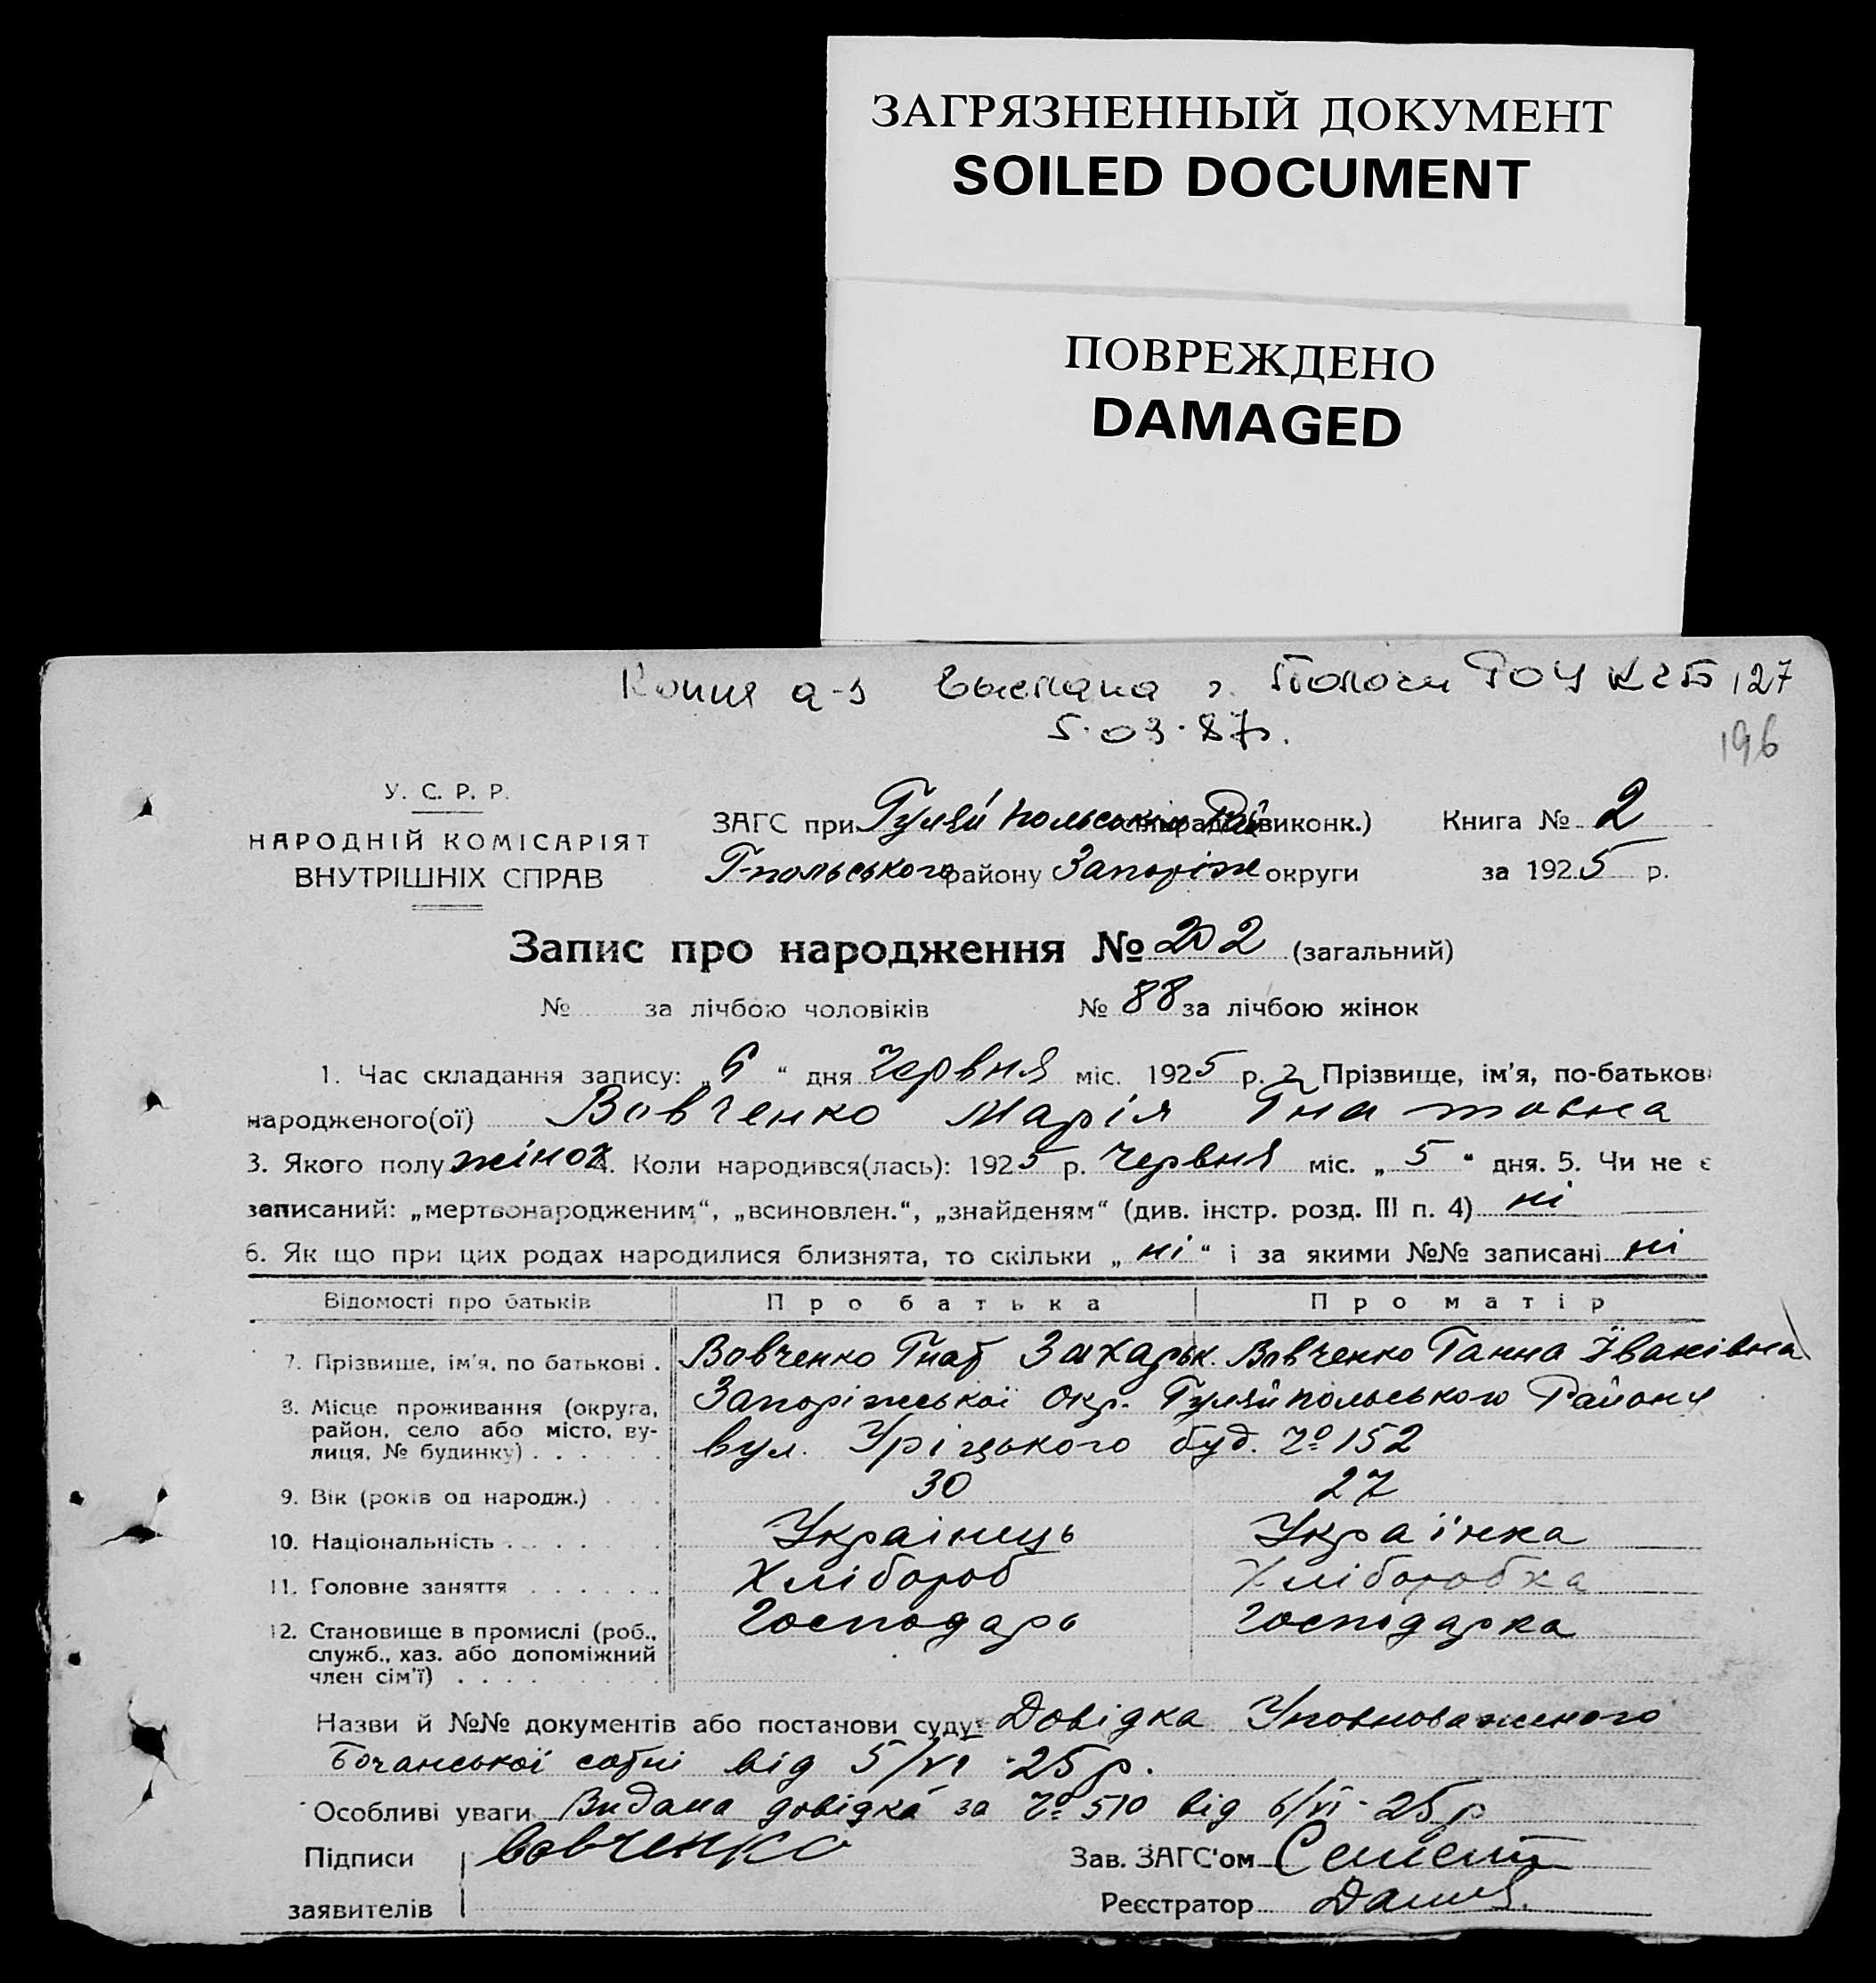 ЗАГРЯЗНЕННЫЙ ДОКУМЕНТ
SOILED DOCUMENT
ПОВРЕЖДЕНО
DAMAGED
Копия а-з выслана г. Пологи 127
5.03.87г.
196
У. С. Р. Р.
НАРОДНІЙ КОМІСАРІЯТ
ВНУТРІШНІХ СПРАВ
ЗАГС при Гуляй польськім Рай виконк.) Книга № 2
Г-польського району Запоріж округи за 1925 р.
Запис про народження № 202 (загальний)
№ за лічбою чоловіків № 88 за лічбою жінок
1. Час складання запису: „6“ дня Червня міс. 1925 р. 2. Прізвище, ім'я, по-батькові
народженого(ої) Вовченко Марія Гнатовна
3. Якого полу жіноч 4. Коли народився(лась): 1925 р. Червня міс. „5“ дня. 5. Чи не є
записаний: „мертвонародженим“, „всиновлен.“, „знайденям“ (див. інстр. розд. III п. 4) ні
6. Як що при цих родах народилися близнята, то скільки „ні“ і за якими №№ записані ні
Відомості про батьків Про батька Про матір
7. Прізвище, ім'я, по батькові . Вовченко Гнат Захарьк. Вовченко Ганна Іванівна
8. Місце проживання (округа, Запоріжської Окр. Гуляйпольського Района
район, село або місто, ву-
лиця, № будинку) . . . . . . вул. Уріцького буд. № 152
9. Вік (років од народж.) . . . 30 27
10. Національність . . . . . . . Українець Українка
11. Головне заняття . . . . . . Хлібороб Хліборобка
12. Становище в промислі (роб., Господарь Господарка
служб., хаз. або допоміжний
член сім'ї) . . . . . . . . .
Назви й №№ документів або постанови суду: Довідка Уповноваженого
Бочанської сотні від 5/VI-25р.
Особливі уваги Видана довідка за № 510 від 6/VI-25р
Підписи Вовченко Зав. ЗАГС'ом
заявителів Реєстратор